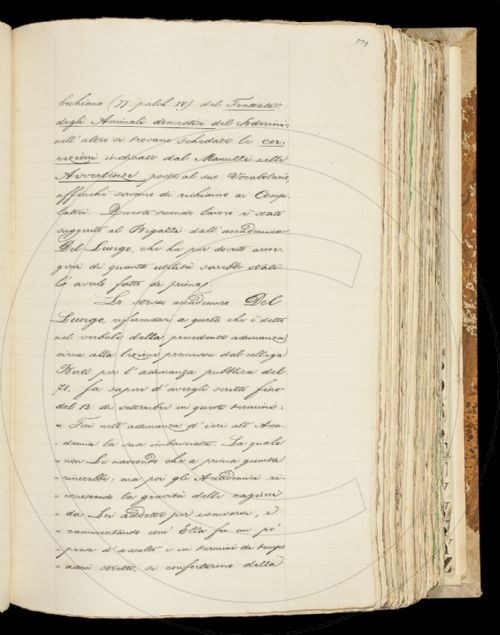 779
bechiano (77. palch. 18) del Trattato
degli Animali domestici del Soderini
nell'altro si trovano schedate le cor-
rezioni indicate dal Manuzzi nelle
Avvertenze poste al suo Vocabolario
affinchè servano di richiamo ai Compi-
latori. Questo secondo lavoro è stato
suggerito al Bigazzi dall'accademico
Del Lungo, che ha pur dovuto accor-
gersi di quanta utilità sarebbe stato
lo averlo fatto da prima.
Lo stesso accademico Del
Lungo, riferendosi a quello che è detto
nel verbale della precedente adunanza
circa alla lezione promessa dal collega
Berti per l'adunanza pubblica del
78. fa sapere d'avergli scritto fino
dal 12 di settembre in questi termini:
" Feci nell'adunanza d'ieri all'Acca-
" demia la sua imbasciata. La quale
" non Le nascondo che a prima giunta
" ; ma poi gli Accademici ri-
" conoscendo la gravità delle ragioni
" da Lei addotte per iscusarsi, e
" rammentando com'Ella fu un po'
" presa d'assalto e in termini di tempo
" assai stretti, si confortarono della